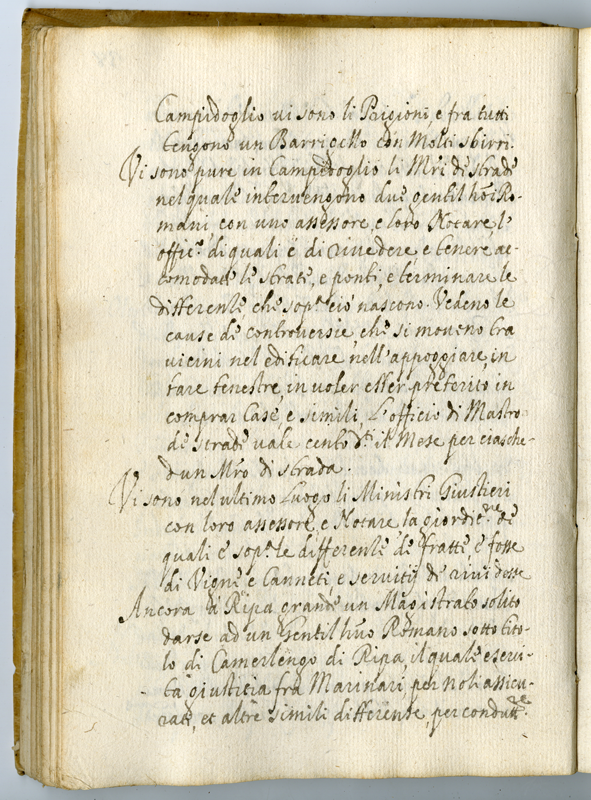 Campidoglio vi sono li Prigioni, e fra tutti
tengono un Barrigello con Molti sbirri.
Vi sono pure in Campidoglio li Mri de strade
nel quale intervengono due gentil hoi Ro-
mani, con uno assessore, e loro Notare, l'
offico. di quali è di rivedere, e tenere ac-
comodate le strate, e ponti, e terminare le
differente, che sopra. ciò nascono. Vedeno le
cause de controversie, che si moveno tra
vicini nel edificare, nell'appoggiare, in
fare fenestre, in voler esser preferito in
comprar Case, e simili, L'officio di Mastro
de strade vale cento di. il Mese per ciasche-
dun Mro di strada.
Vi sono nel ultimo Luogo li Ministri Giustieri
con loro assessore, e Notare, la giordicne. de
quali è sopra. le differente de fratte, e fosse
di Vigne e Canneti, e servitij de rivi desse
Ancora à Ripa grande un Magistrato solito
darse ad un Gentil huo Romano sotto tito-
lo di Camerlengo di Ripa, il quale eservi-
ta giustitia fra Marinari, per noli assicu-
rati, et altre simili differente, per condutre.